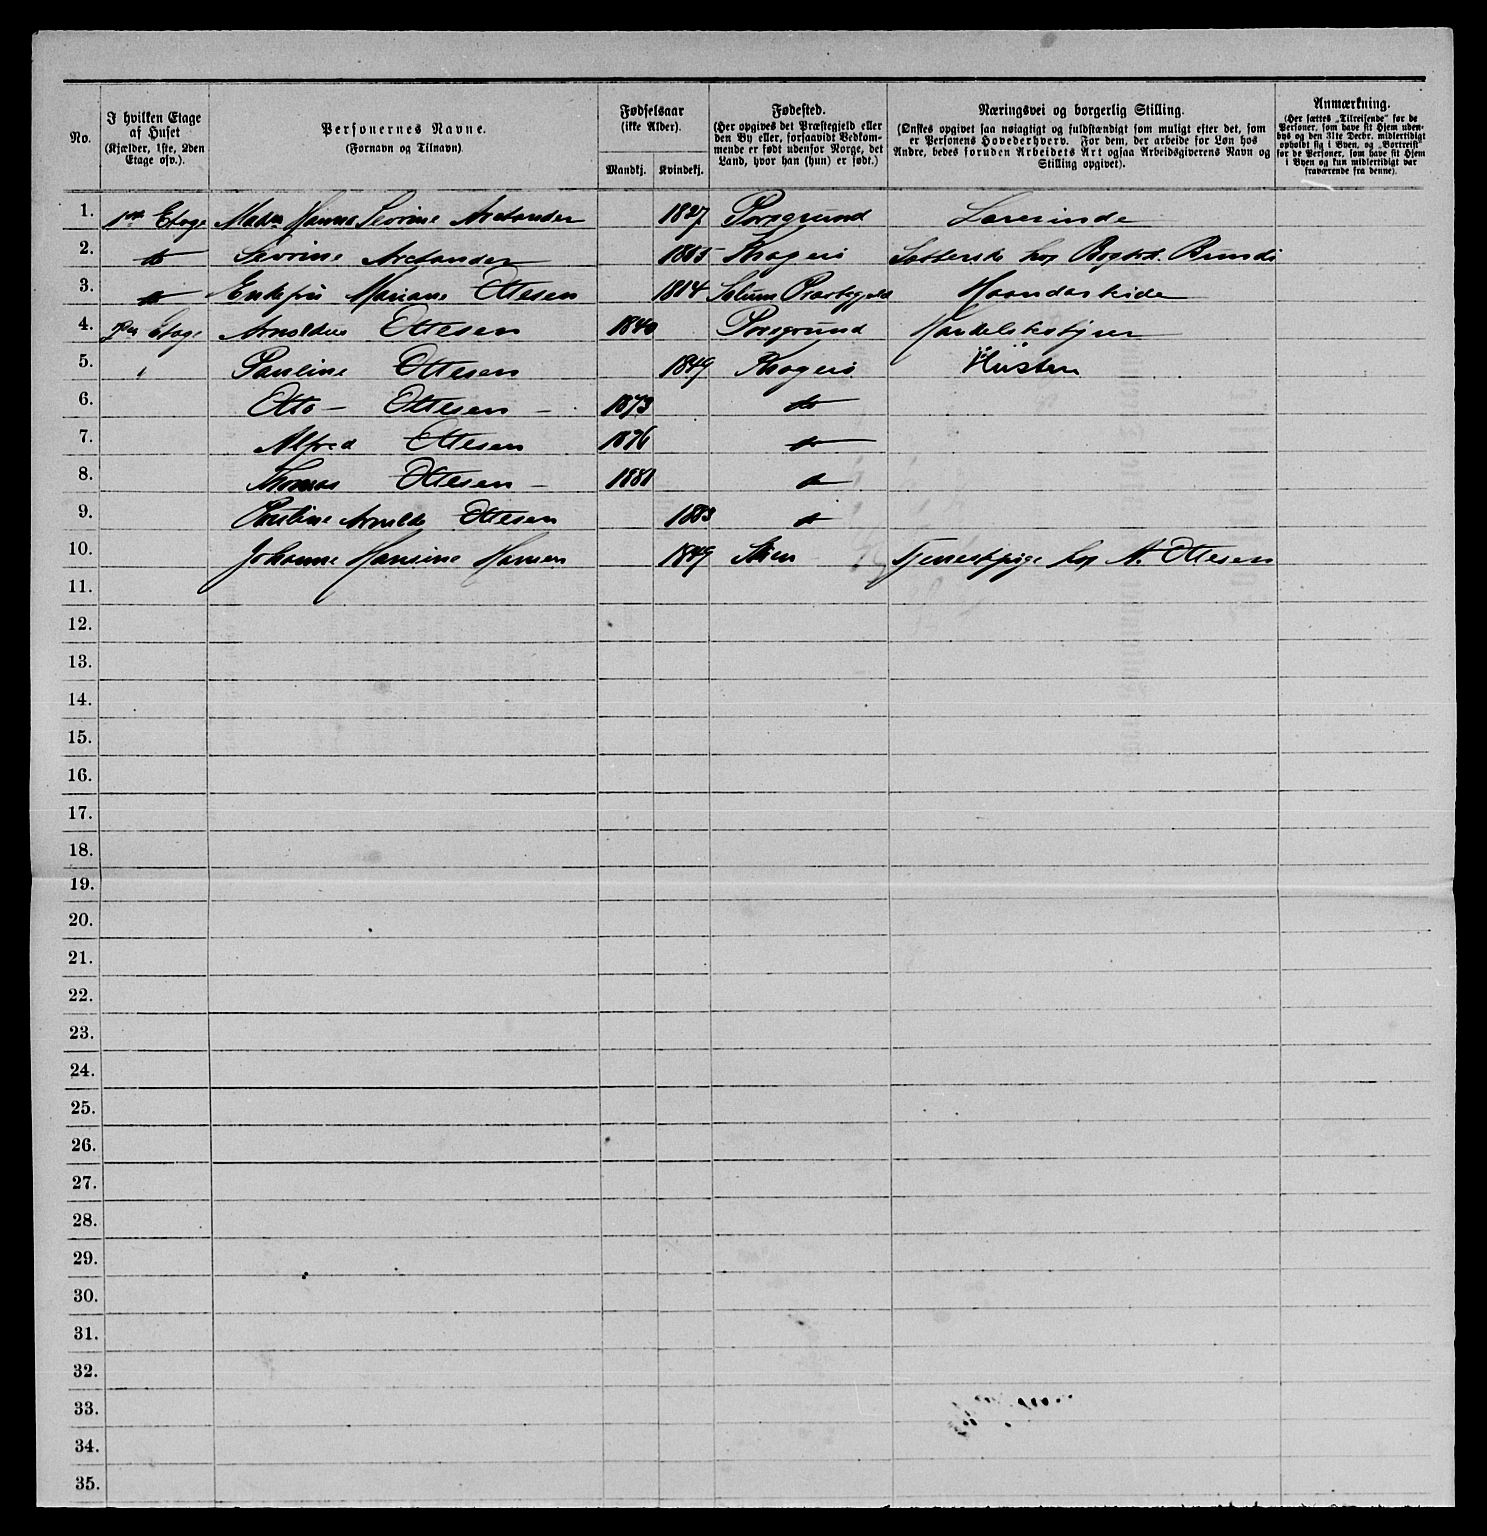 No.
I hvilken Etage af Huset
(Kjælder, 1ste, 2den Etage osv.).
Personernes Navne.
(Fornavn og Tilnavn).
Fødselsaar
(ikke Alder).
Mandkj. Kvindekj.
Fødested.
(Her opgives det Præstegjeld eller
den By eller, forsaavidt Vedkom-
mende er født udenfor Norge, det
Land, hvor han (hun) er født.)
Næringsvei og borgerlig Stilling.
(Ønskes opgivet saa nøiagtigt og fuldstændigt som muligt efter det, som
er Personens Hovederhverv. For dem, der arbeide for Løn hos
Andre, bedes foruden Arbeidets Art ogsaa Arbeidsgiverens Navn og
Stilling opgivet).
Anmærkning.
(Her sættes „Tilreisende" for de
Personer, som have sit Hjem uden-
bys og den 31te Decbr. midlertidigt
opholdt sig i Byen, og „Bortreist"
for de Personer, som have sit Hjem
i Byen og kun midlertidigt var
fraværende fra denne).
1. 1ste Etage Madm Hanna Sevrine Arctander 1827 Porsgrund Lærerinde
2. do Sevrine Arctander 1865 Kragerø hos Bogtr.
3. do Enkefru Mariane Ottesen 1814 Solum Præstegjeld Haandarbeide
4. 2den Etage Arnoldus Ottesen 1840 Porsgrund Handelsbestyrer
5. Pauline Ottesen 1849 Kragerø Hustru
6. Otto Ottesen 1873 do
7. Alfred Ottesen 1876 do
8. Thomas Ottesen 1881 do
9. Pauline Arnolda Ottesen 1883 do
10. Johanne Hansine Hansen 1849 Skien Tjenestpige hos A. Ottesen
11.
12.
13.
14.
15.
16.
17.
18.
19.
20.
21.
22.
23.
24.
25.
26.
27.
28.
29.
30.
31.
32.
33.
34.
35.